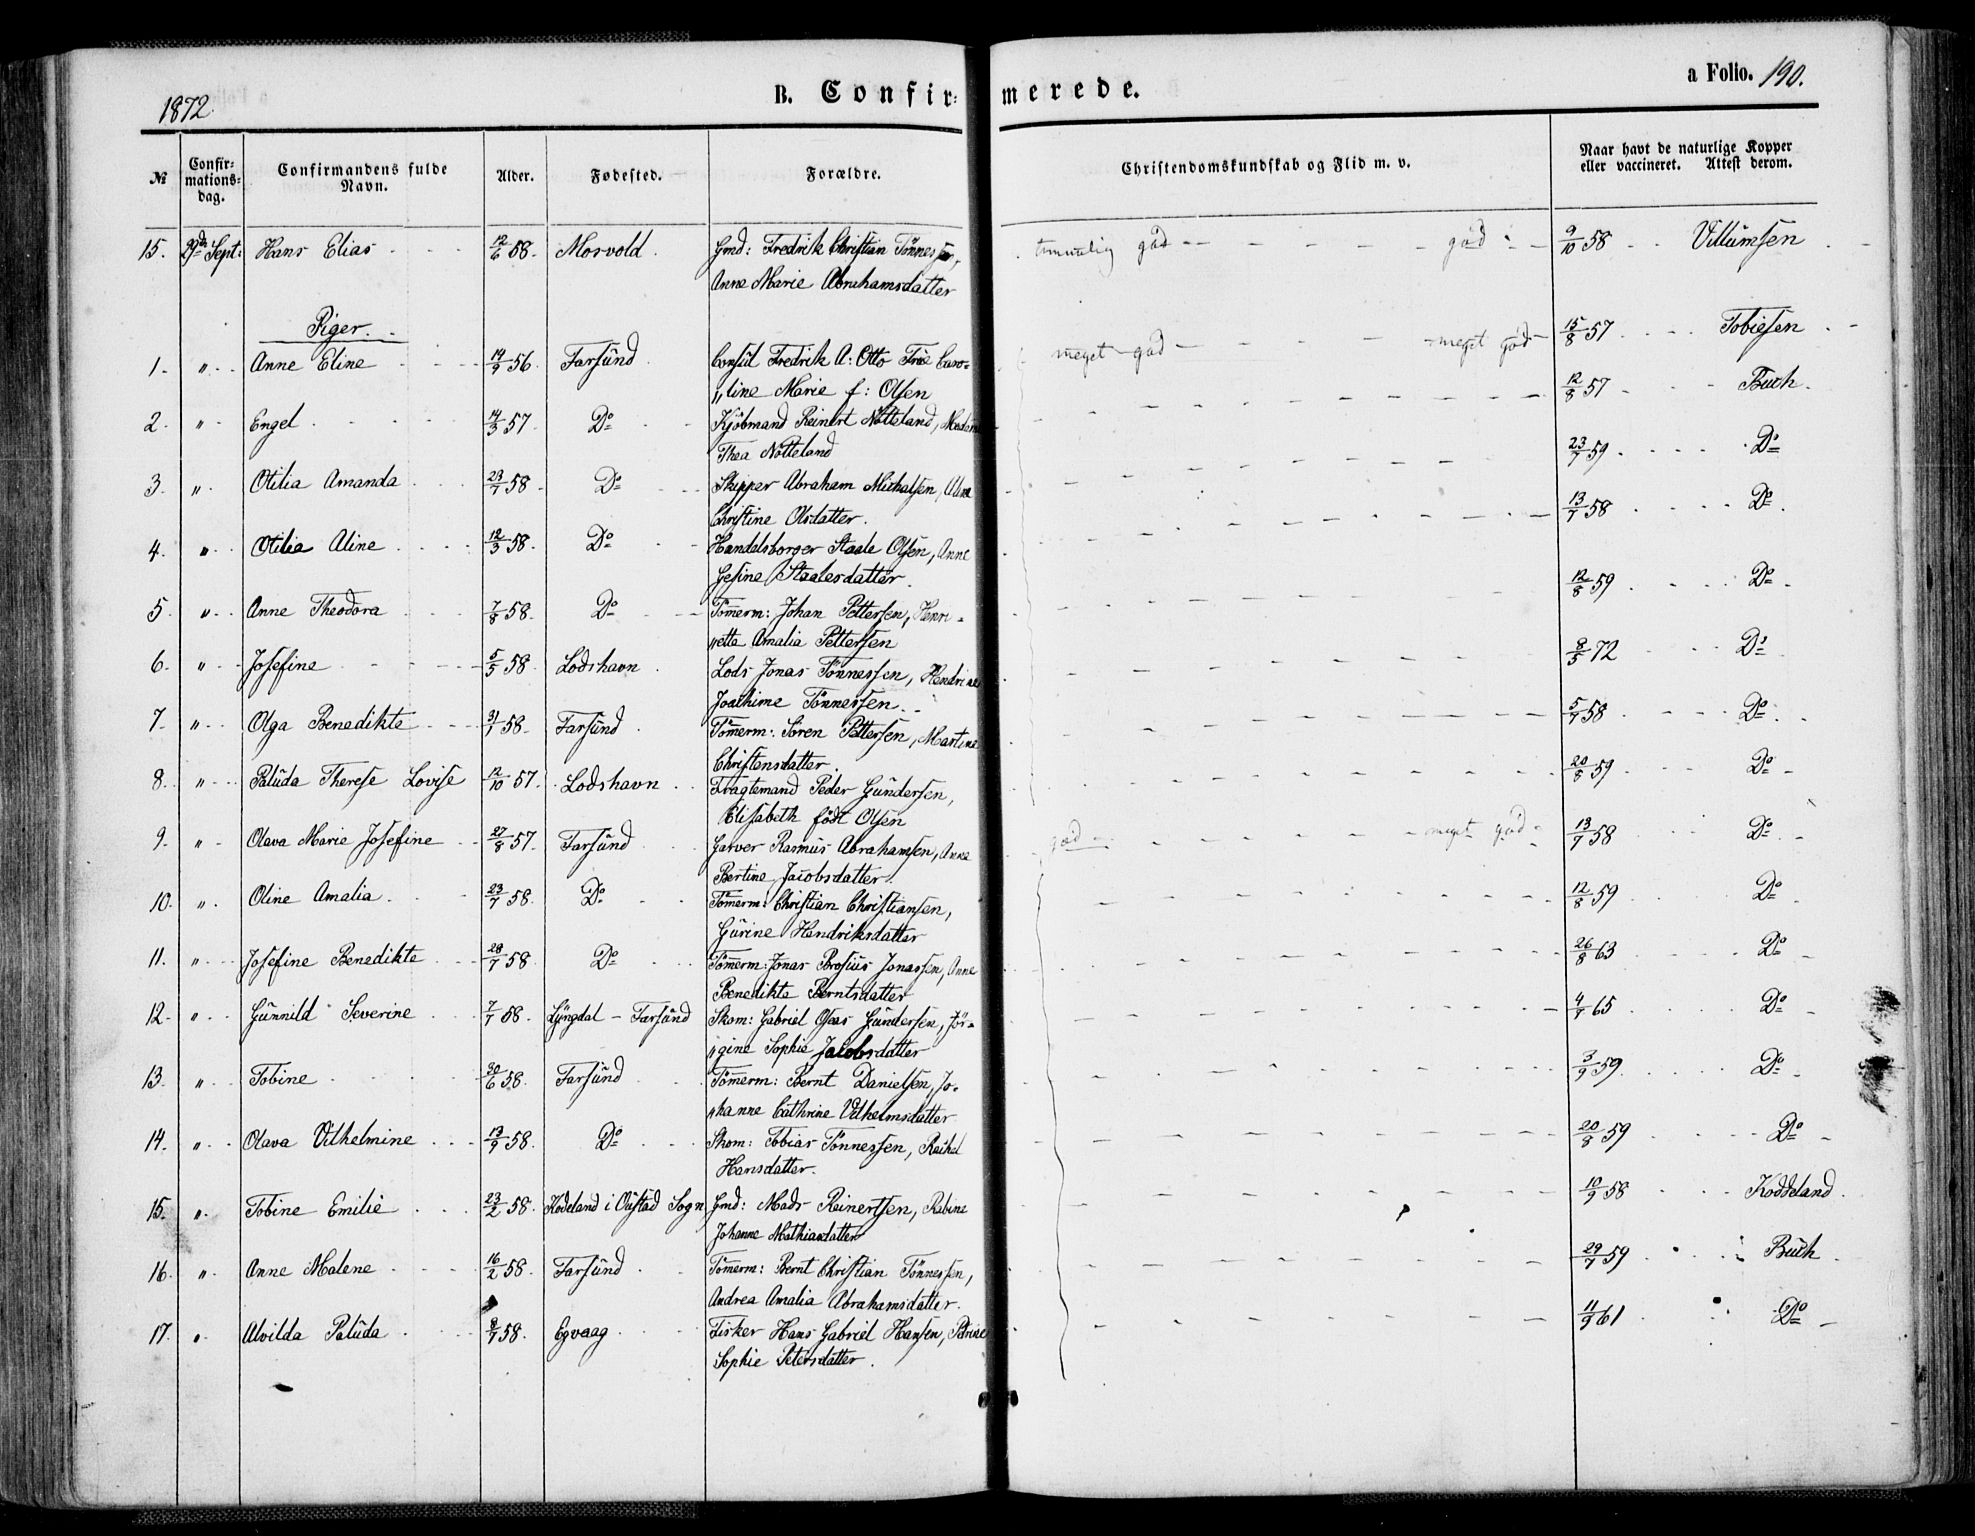 1872. B. Confir= merede. a Folio. 190.
№ Confir=mations=dag. Confirmandens fulde Navn. Alder. Fødested. Forældre. Christendomskundskab og Flid m. v. Naar havt de naturlige Kopper eller vaccineret. Attest derom.
15. 29de Sept: Hans Elias 12/6 58. Mosvold. Gmd: Fredrik Christian Tönnessen, temmelig god god 9/10 58 Villumsen
Anne Marie Abrahamsdatter
Piger.
1. " Anne Eline 14/9 56. Farsund. Consul Fredrik A: Otto Caro= meget god meget god 15/8 57. Tobiesen
"line Marie f: Olsen
2. " Engel 14/3 57. Do Kjöbmand Reinert Nötteland, 12/8 57 Buch.
Thea Nötteland
3. " Otilia Amanda 23/7 58. Do Skipper Abraham Michalsen, 23/7 59. Do
Christine Olsdatter.
4. " Otilia Aline 12/3 58. Do Handelsborger Staale Olsen, Anne 13/7 58 Do.
Gesine Staalesdatter.
5. " Anne Theodora 7/8 58. Do Tömerm: Johan Pettersen, Henri= 12/8 59 Do
"ette Amalia Pettersen
6. " Josefine 5/5 58. Lodshavn. Lods Jonas Tönnessen, 8/5 72 Do
Joachime Tönnessen.
7. " Olga Benedikte 31/1 58. Farsund. Tömerm: Sören Pettersen, Martine 5/7 58 Do.
Christensdatter.
8. " Paluda Therese Lovise 12/10 57. Lodshavn Fragtemand Peder Gundersen, 20/8 59 Do
Elisabeth födt Olsen
9. " Olava Marie Josefine 27/8 57. Farsund Garver Rasmus Abrahamsen, Anne god meget god 13/7 58 Do.
Bertine Jacobsdatter.
10. " Oline Amalia 23/7 58. Do Tömerm: Christian Christiansen, 12/8 59 Do
Gurine Hendriksdatter
11. " Josefine Benedikte 28/7 58 Do Tömerm: Jonas Brosius Jonassen, Anne 26/8 63 Do
Benedikte Berntsdatter
12. " Gunnild Severine 7/7 58. Lyngdal - Farsund Skom: Gabriel Oseas Gundersen, Jör= 4/7 65 Do
"gine Sophie Jacobsdatter
13. " Tobine 30/6 58. Farsund Tömerm: Bernt Danielsen, Jo= 3/9 59. Do
"hanne Cathrine Vilhelmsdatter
14. " Olava Vilhelmine 13/9 58. Do Skom: Tobias Tönnessen, Rachel 20/8 59 Do
Hansdatter.
15. " Tobine Emilie 23/2 58. Kodeland i Oustad Sogn Gmd: Mads Reinertsen, Rabine 10/9 58 Koddeland.
Johanne Mathiasdatter
16. " Anne Malene 16/2 58. Farsund Tömerm: Bernt Christian Tönnessen, 29/7 59 Buch
Andrea Amalia Abrahamsdatter.
17. " Alvilda Paluda 8/7 58. Egvaag Fisker Hans Gabriel Hansen, Petrine 11/9 61 Do
Sophie Petersdatter.